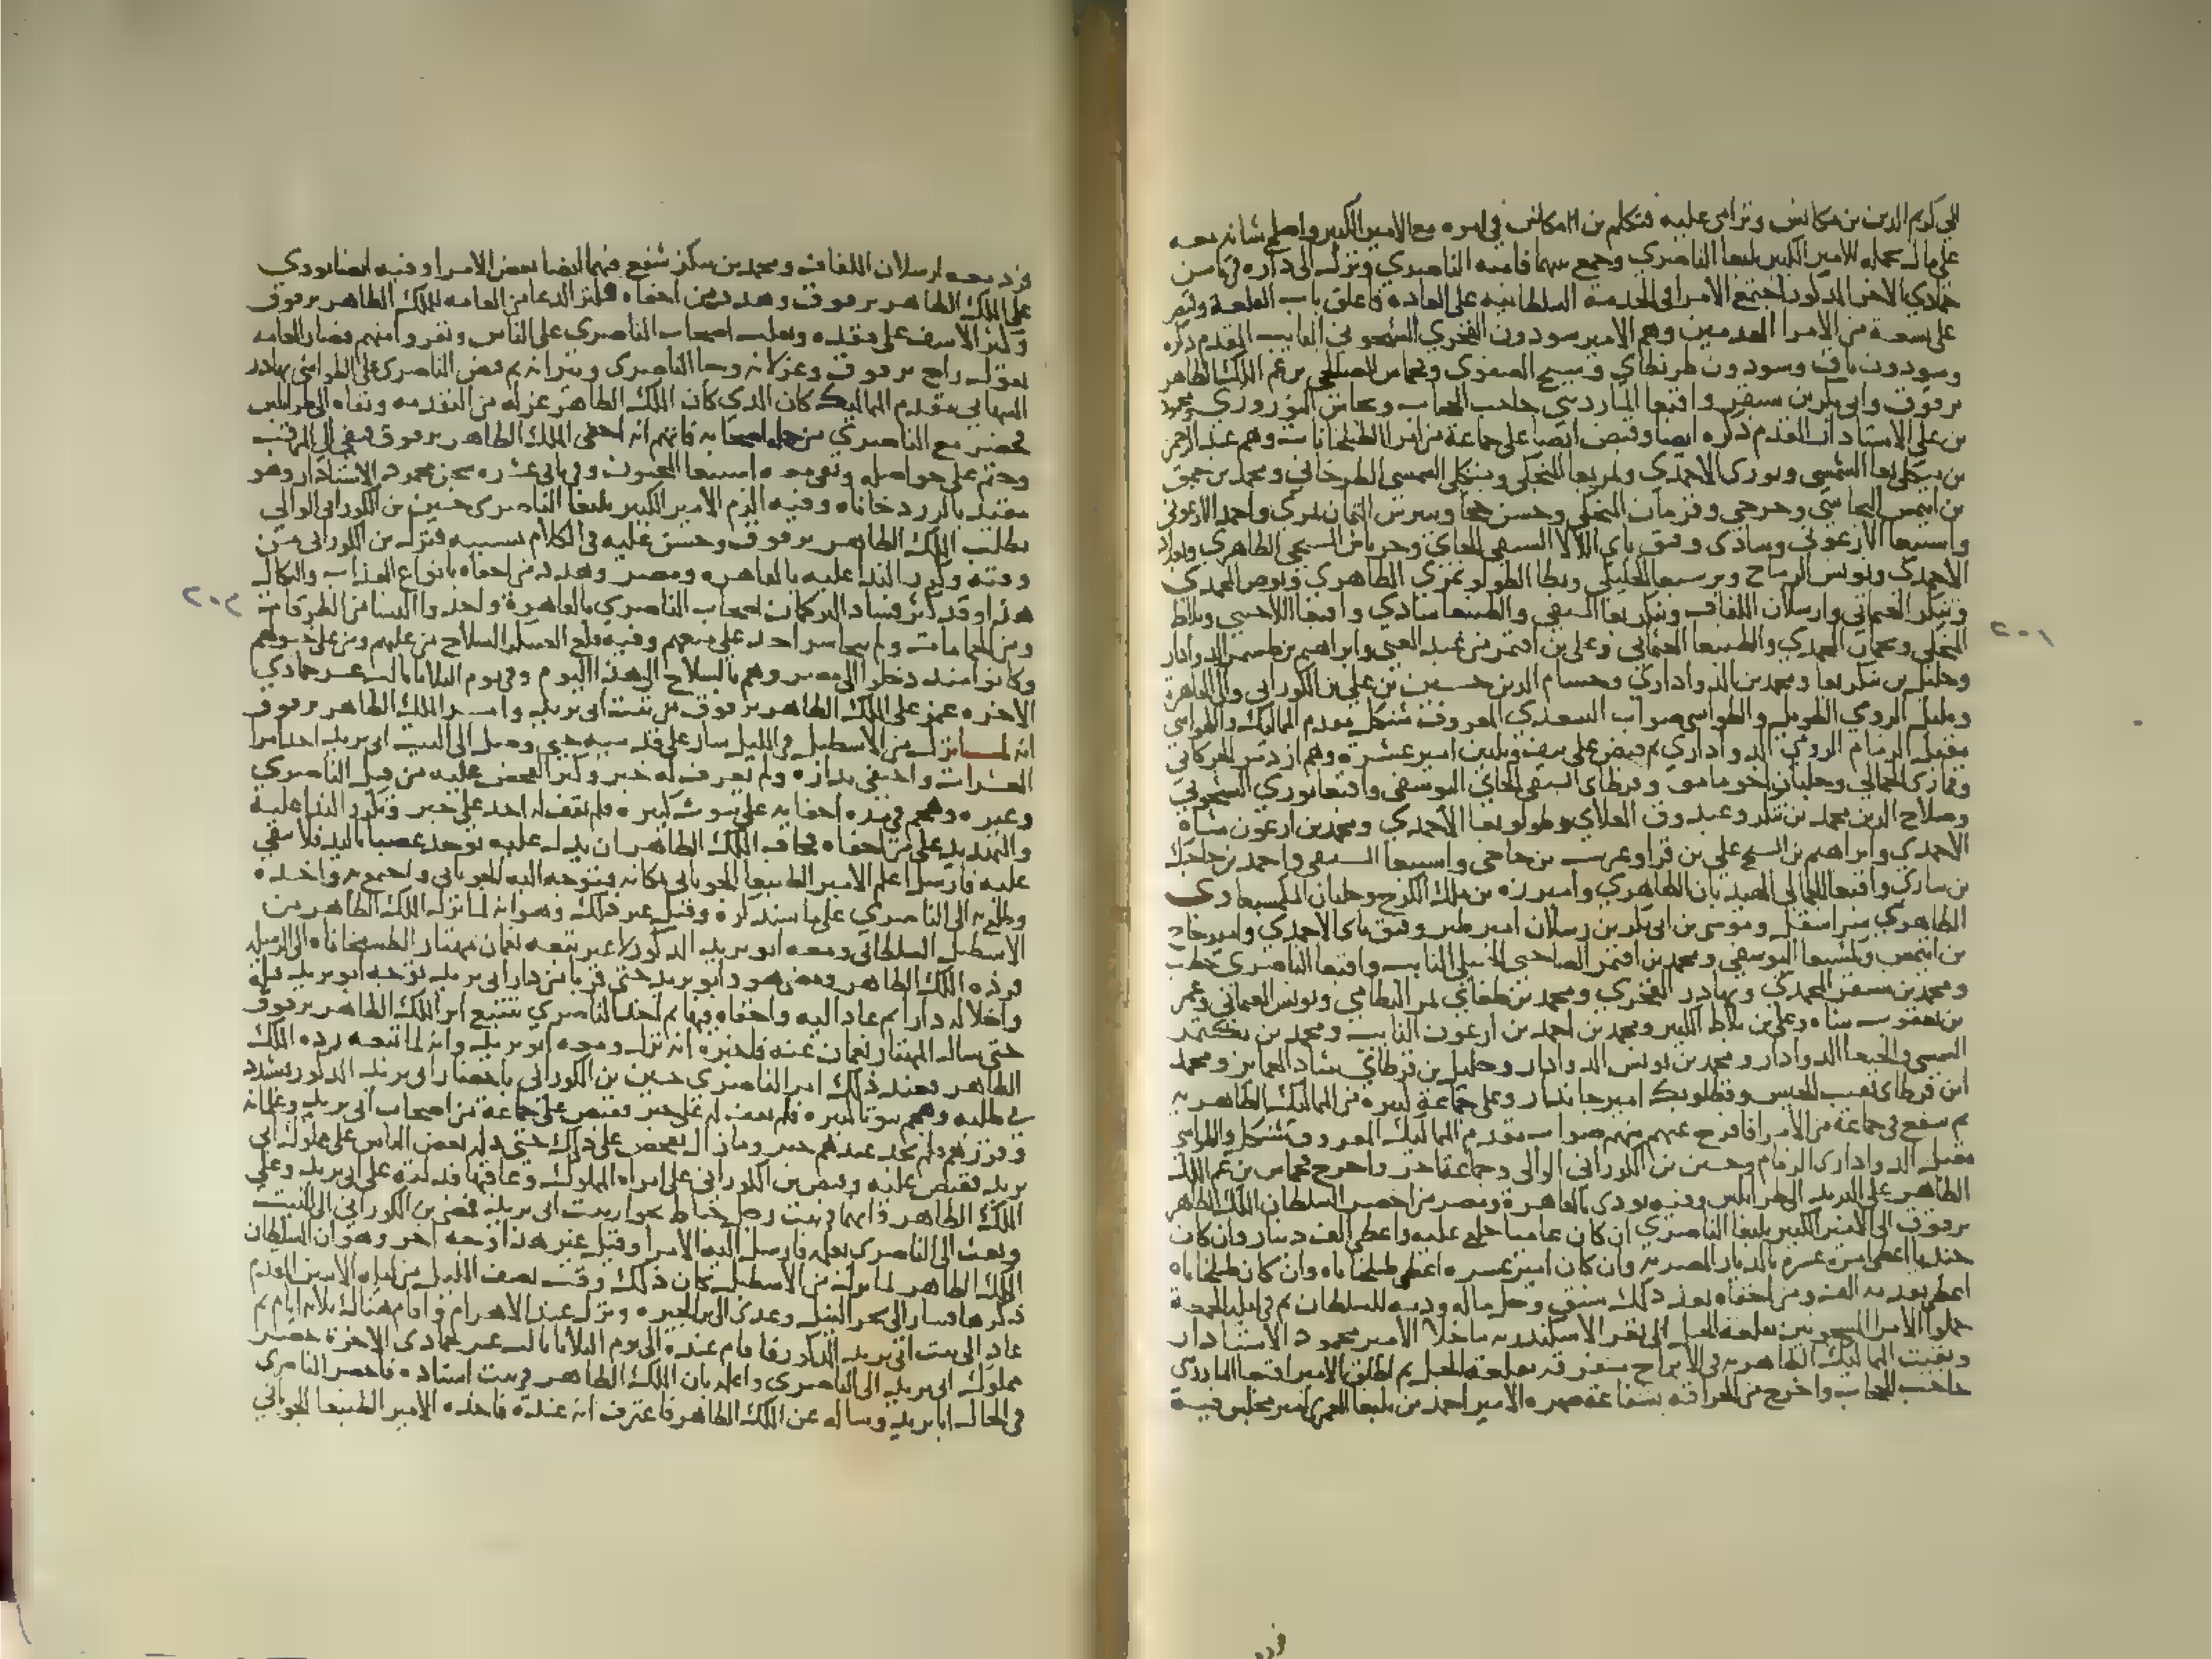 الى كريم الدين بن مكانس وترامى عليه فتكلم بن مكانس في امره مع الامير الكبير واصلح شانه معه
على مال يحمله للامير الكبير يلبغا الناصري وجمع بينهما فامنه الناصري ونزل الى داره في ثامن
جمادي الاخر المذكور اجتمع الامرا في الخدمة السلطانيه على العاده فاغلق باب القلعة وقبض
على تسعة من الامرا المقدمين وهم الامير سودون الفخري الشيخوني النايب المقدم ذكره
وسودون باق وسودون طرنطاي وشيخ الصفوي وقجماس الصالحي بن عم الملك الظاهر
برقوق وابو بكر بن سنقر واقبغا المارديني حاجب الحجاب وبجاس النوروزي ومحمود
بن على الاستادار المقدم ذكره ايضا وقبض ايضا على جماعة من امرا الطبلخانات وهم عبد الرحيم
بن منكلي بغا الشمسي وبوري الاحمدي وتمربغا المنجكي ومنكلي الشمسي الطرخاني ومحمد بن جمق
بن ايتمش البجاسي وجرجي وقرمان المنجكي وحسن خجا وبيبرس التمان تمري واحمد الارغوني
واسنبغا الارغوني وسادي وقنق باي اللالا السيفي الجاي وجرباش الشيخي الظاهري وبغداد
الاحمدي ويونس الرماح وبرسبغا الخليلي وبطا الطولوتمري الظاهري ونوص المحمدي
وتنكز العثماني وارسلان اللفاف وتنكز بغا السيفي والطنبغا شادي واقبغا اللاجيني وبلاط
المنجكي وبجمان المحمدي والطنبغا العثماني وعلي بن اقتمر من عبد الغني وابراهيم بن طشتمر الدوادار
وخليل بن تنكز بغا ومحمد بن الدواداري وحسام الدين حسين بن علي بن الكوراني والي القاهرة
وبلبل الرومي الطويل والطواشي صواب السعدي المعروف بشنكل مقدم المماليك والطواشي
مقبل الزمام الرومي الدواداري ثم قبض على نيف وثلاثين امير عشرة وهم ازدمر الجركاني
وقماري الجمالي وجلبان اخو مامق وقرطاي السيفي الجاي اليوسفي واقبغا بوري الشيخوني
وصلاح الدين محمد بن تنكز وعبدوق العلاي وطولوبغا الاحمدي ومحمد بن ارغون شاه
الاحمدي وابراهيم بن الشيخ علي بن قرا وغريب بن حاجي واسنبغا السيفي واحمد بن حاجبك
بن شادي واقبغا الجمالي الهيدباني الظاهري وامير زه بن ملك الكرج وجلبان الكمشبغاوي
الظاهري وموسى بن ابي بكر بن رسلان امير طبر وقنق باي الاحمدي وامير حاج
بن ايتمش وكمشبغا اليوسفي ومحمد بن اقتمر الصاحبي الحنبلي النايب واقبغا الناصري حطب
ومحمد بن سنقر المحمدي وبهادر الفخري ومحمد بن طغاي تمر النظامي ويونس العثماني وعمر
بن يعقوب شاه وعلي بن بلاط الكبير ومحمد بن احمد بن ارغون النايب ومحمد بن بكتمر
الشمسي والجبغا الدوادار ومحمد بن يونس الدوادار وخليل بن قرطاي شاد العماير ومحمد
ابن قرطاي نقيب الجيش وقطلوبك امير جاندار وعلى جماعة كبيرة من المماليك الظاهريه
ثم شفع في جماعة من الامرا فافرج عنهم منهم صواب مقدم المماليك المعروف بشنكل والطواشي
مقبل الدواداري الزمام وحسين بن الكوراني الوالي وجماعة اخر واخرج قجماس بن عم الملك
الظاهر على البريد الى طرابلس وفيه نودي بالقاهرة ومصر من احضر السلطان الملك الظاهر
برقوق الى الامير الكبير يلبغا الناصري ان كان عاميا خلع عليه واعطي الف دينار وان كان
جنديا اعطي امرة عشرة بالديار المصريه وان كان امير عشره اعطي طبلخاناه وان كان طبلخاناه
اعطي تقدمه الف ومن اخفاه بعد ذلك شنق وحل ماله ودمه للسلطان ثم في ليلة الجمعة
حملوا الامرا المسجونين بقلعة الجبل الى ثغر الاسكندريه ما خلا الامير محمود الاستادار
وبقيت المماليك الظاهريه في الابراج متفرقه بقلعة الجبل ثم اطلق الامير اقبغا المارديني
حاجب الحجاب واخرج من الحراقه بشفاعة صهره الامير احمد بن يلبغا العمري امير مجلس فيه
فرد
٢٠١
فرد معه ارسلان اللفاف ومحمد بن تنكز شفع فيهما ايضا بعض الامرا وفيه ايضا نودي
على الملك الظاهر برقوق وهدد من اخفاه فكثر الدعا من العامه للملك الظاهر برقوق
وكثر الاسف على فقده وثقلت اصحاب الناصري على الناس ونفروا منهم فصار العامه
تقول راح برقوق وغزلانه وجا الناصري وتيرانه ثم قبض الناصري على الطواشي بهادر
الشهابي مقدم المماليك كان الذي كان الملك الظاهر عزله من التقدمه ونفاه الى طرابلس
فحضر مع الناصري من جملة اصحابه فاتهم انه اخفى الملك الظاهر برقوق فنفي الى المرقب
وختم على حواصله ونفي معه اسنبغا المجنون وفي ثاني عشره سجن محمود الاستادار وهو
مقيد بالزردخاناه وفيه الزم الامير الكبير يلبغا الناصري حسين بن الكوراني الوالي
بطلب الملك الظاهر برقوق وخشن عليه في الكلام بسببه فنزل بن الكوراني من
وقته وكرر الندا عليه بالقاهره ومصر وهدد من اخفاه بانواع العذاب والنكال
هذا وقد كثر فساد التركمان اصحاب الناصري بالقاهرة واخذوا النسا من الطرقات
ومن الحمامات ولم يتجاسر احد على منعهم وفيه قلع العسكر السلاح من عليهم ومن على خيولهم
وكانوا منذ دخلوا الى مصر وهم بالسلاح الى هذا اليوم وفي يوم الثلاثا ثالث عشر جمادي
الاخره غمز على الملك الظاهر برقوق من بيت ابي يزيد وامسك الملك الظاهر برقوق
انه لما نزل من الاسطبل في الليل سار على قدميه حتى وصل الى البيت ابي يزيد احد امرا
العشرات واختفى بداره ولم يعرف له خبر وكثر الفحص عليه من قبل الناصري
وغيره وهجم في مدة اخفايه على بيوت كثيره فلم يقف له احد على خبر وتكرر الندا عليه
والتهديد على من اخفاه فخاف الملك الظاهر ان يدل عليه فيوخذ غصبا باليد فلا يبقي
عليه فارسل اعلم الامير الطنبغا الجوباني مكانه فتوجه اليه الجوباني واجتمع به واخذه
وطلع به الى الناصري على ما سنذكره وقيل غير ذلك وهو انه لما نزل الملك الظاهر من
الاسطبل السلطاني ومعه ابو يزيد المذكور لا غير تبعه نعمان مهتار الطشتخاناه الى الرميله
فرده الملك الظاهر ومضى هو وابو يزيد حتى قربا من دار ابي يزيد توجه ابو يزيد قبله
واخلا له دارا ثم عاد اليه واخفاه فيها ثم اخذ الناصري يتتبع اثر الملك الظاهر برقوق
حتى سال المهتار نعمان عنه فاخبره انه نزل ومعه ابو يزيد وانه لما تبعه رده الملك
الظاهر فعند ذلك امر الناصري حسين بن الكوراني باحضار ابي يزيد المذكور فشدد
في طلبه وهجم بيوتا كثيره فلم يقف له على خبر فقبض على جماعة من اصحاب ابي يزيد وغلمانه
وقررهم فلم يجد عندهم خبر وما زال يفحص على ذلك حتى دله بعض الناس على مملوك ابي
يزيد فقبض عليه وقبض بن الكوراني على امراة المملوك وعاقبها فدلته على ابي يزيد وعلى
الملك الظاهر وانهما في بيت رجل خياط بجوار بيت ابي يزيد فمضى بن الكوراني الى البيت
وبعث الى الناصري يعلمه فارسل اليه الامرا وقيل غير هذا وجه اخر وهو ان السلطان
الملك الظاهر لما نزل من الاسطبل كان ذلك وقت نصف الليل من ليلة الاثنين المقدم
ذكرها فسار الى بحر النيل وعدى الى بر الجيزه ونزل عند الاهرام واقام هناك ثلاثة ايام ثم
عاد الى بيت ابي يزيد المذكور فاقام عنده الى يوم الثلاثا ثالث عشر جمادي الاخرة حضر
مملوك ابي يزيد الى الناصري واعلمه بان الملك الظاهر في بيت استاده فاحضر الناصري
في الحال ابا يزيد وساله عن الملك الظاهر فاعترف انه عنده فاخذه الامير الطنبغا الجوباني
٢٠٢